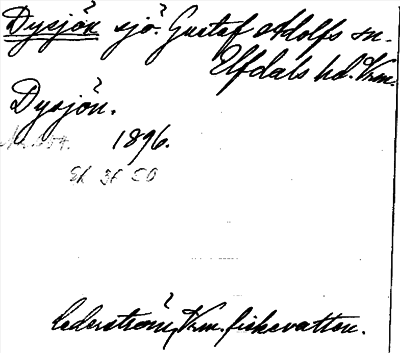 Dysjön sjö. Gustaf Adolfs sn.
Elfdals hd. Vrm.
Dysjön.
1896.
Ek 3f 50
Cederström, Vrm. fiskevatten.